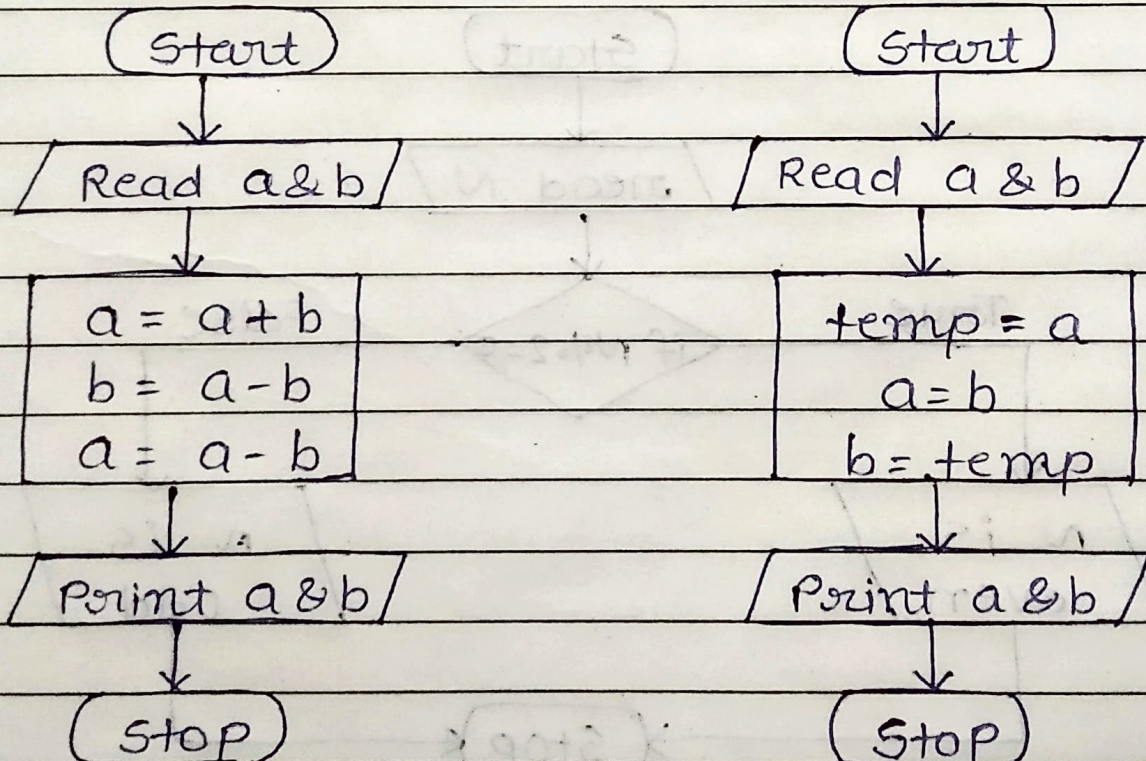 Start
Read a & b
a = a + b
b = a - b
a = a - b
Print a & b
Stop
Start
Read a & b
temp = a
a = b
b = temp
Print a & b
Stop